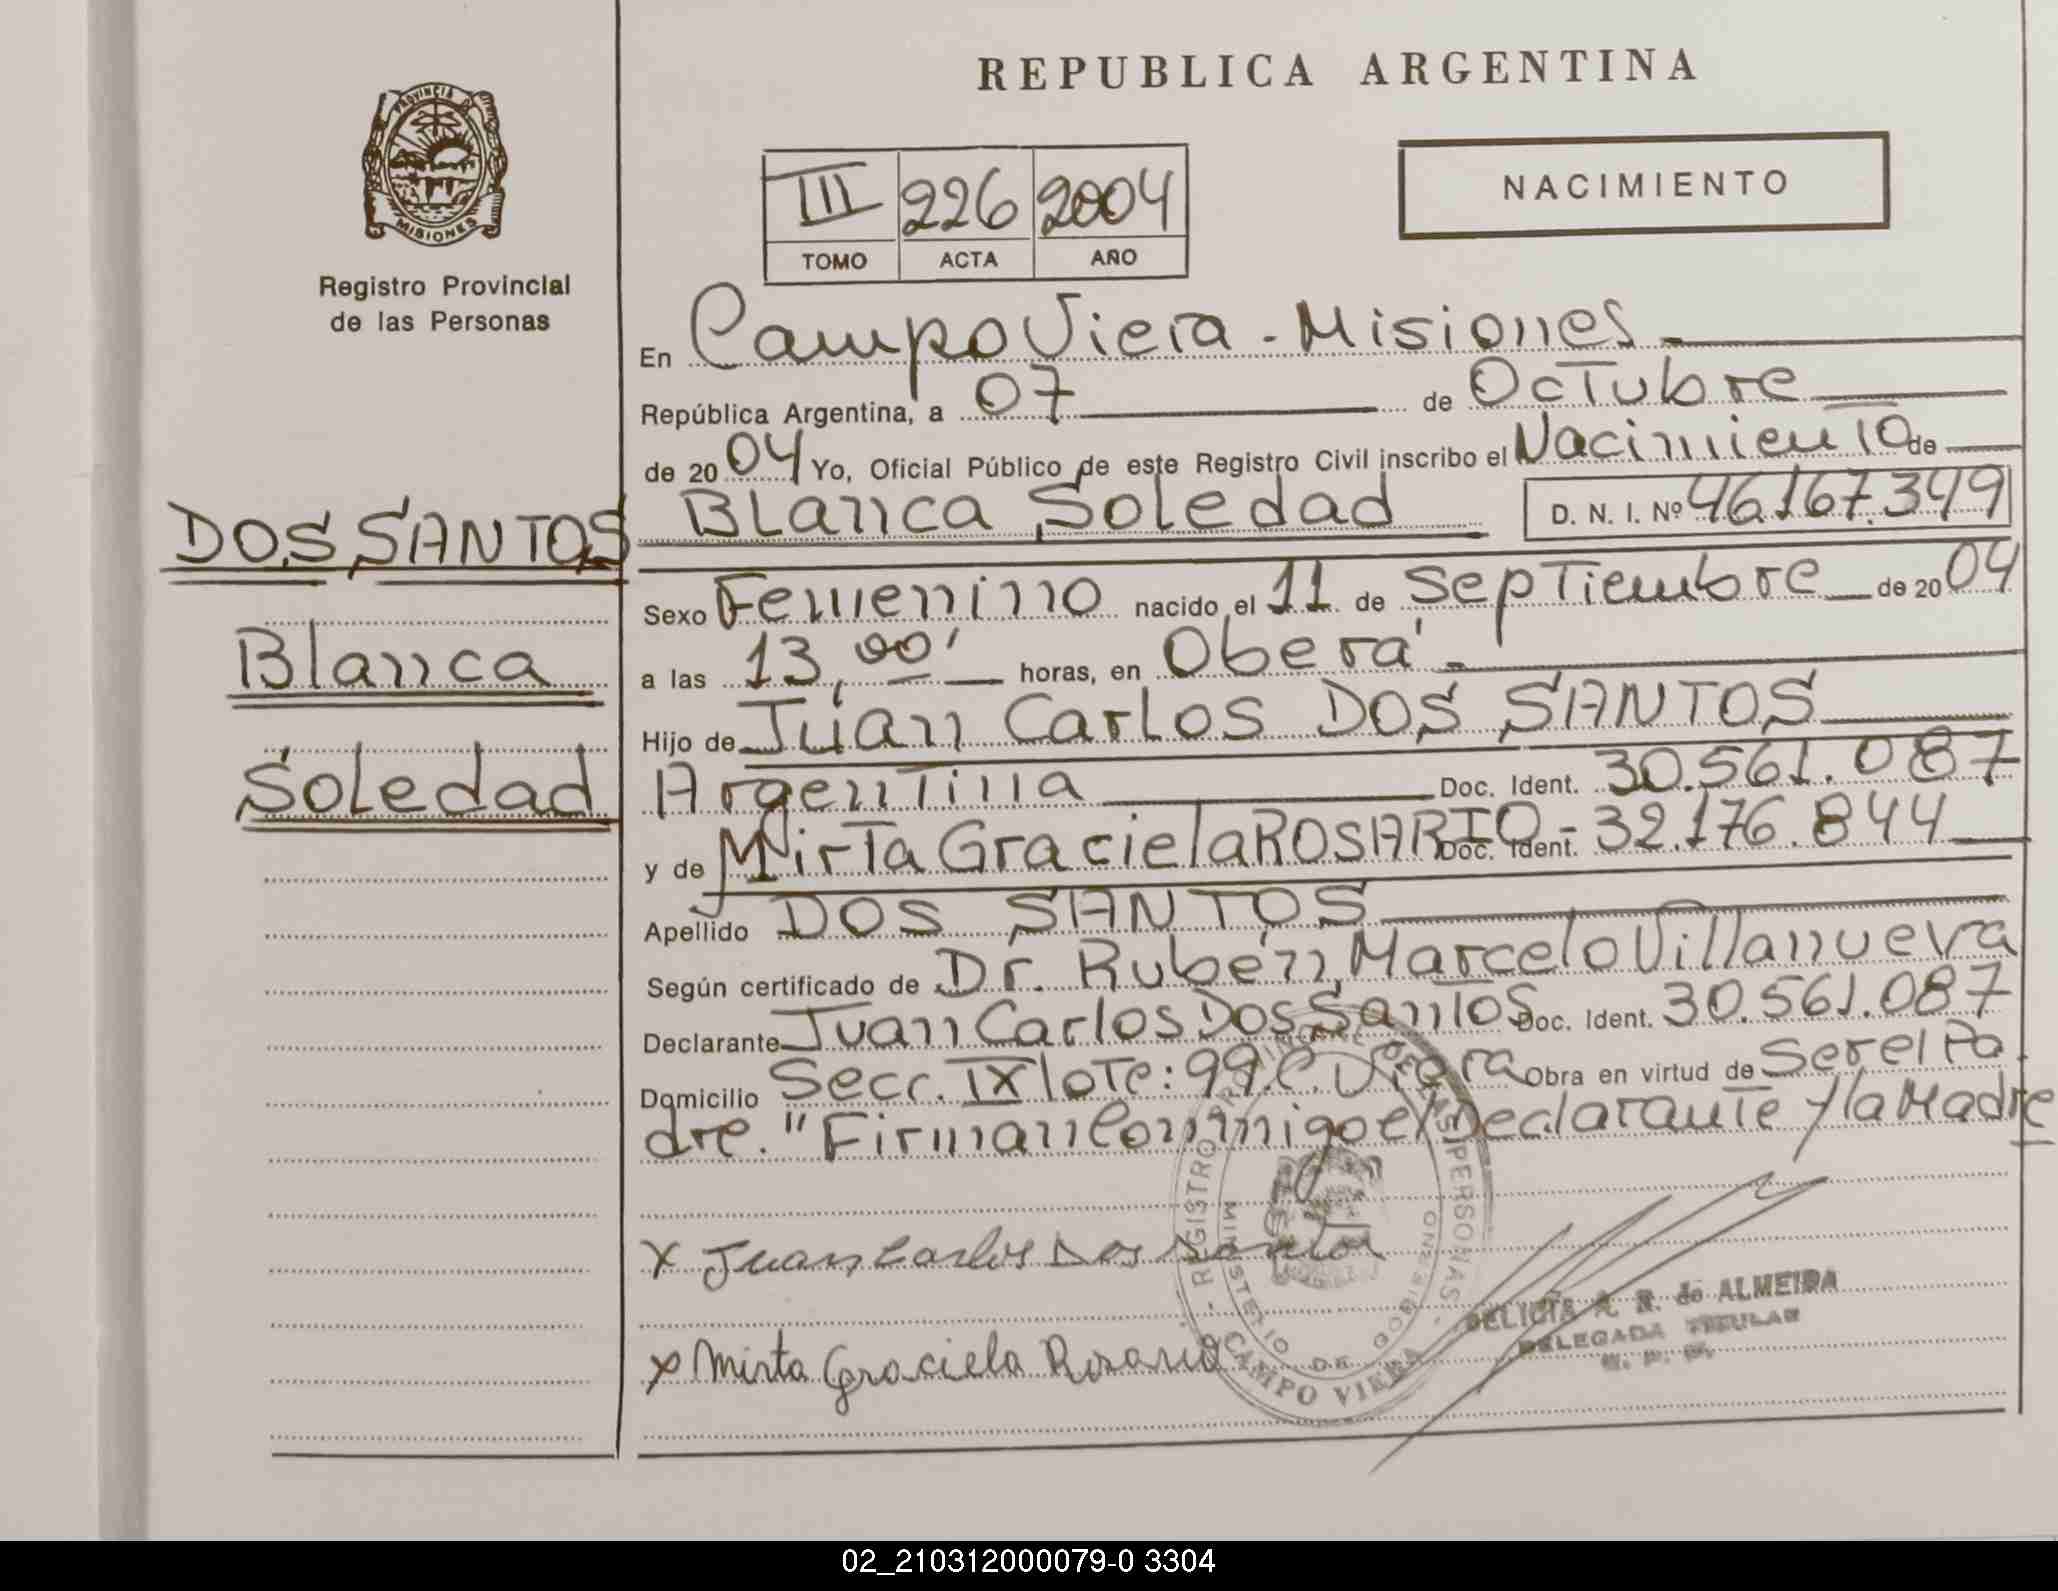 REPUBLICA ARGENTINA
PROVINCIA DE
MISIONES
Registro Provincial
de las Personas
III 226 2004
TOMO ACTA AÑO
NACIMIENTO
En Campo Viera - Misiones
República Argentina, a 07 de Octubre
de 2004 Yo, Oficial Público de este Registro Civil inscribo el Nacimiento de
DOS SANTOS
Blanca
Soledad
Blanca Soledad D. N. I. Nº 46.167.349
Sexo Femenino nacido el 11 de Septiembre de 2004
a las 13,00' horas, en Oberá
Hijo de Juan Carlos DOS SANTOS
Argentina Doc. Ident. 30.561.087
y de Mirta Graciela ROSARIO - Doc. Ident. 32.176.844
Apellido DOS SANTOS
Según certificado de Dr. Rubén Marcelo Villanueva
Declarante Juan Carlos Dos Santos Doc. Ident. 30.561.087
Domicilio Secc. IX lote: 99 C. Viera Obra en virtud de Ser el Pa
dre. "Firman Conmigo el Declarante y la Madre
X Juan Carlos Dos Santos
X Mirta Graciela Rosario
REGISTRO PROVINCIAL DE LAS PERSONAS
MINISTERIO DE GOBIERNO
CAMPO VIERA
DELICIA A. R. de ALMEIDA
DELEGADA TITULAR
02_210312000079-0 3304